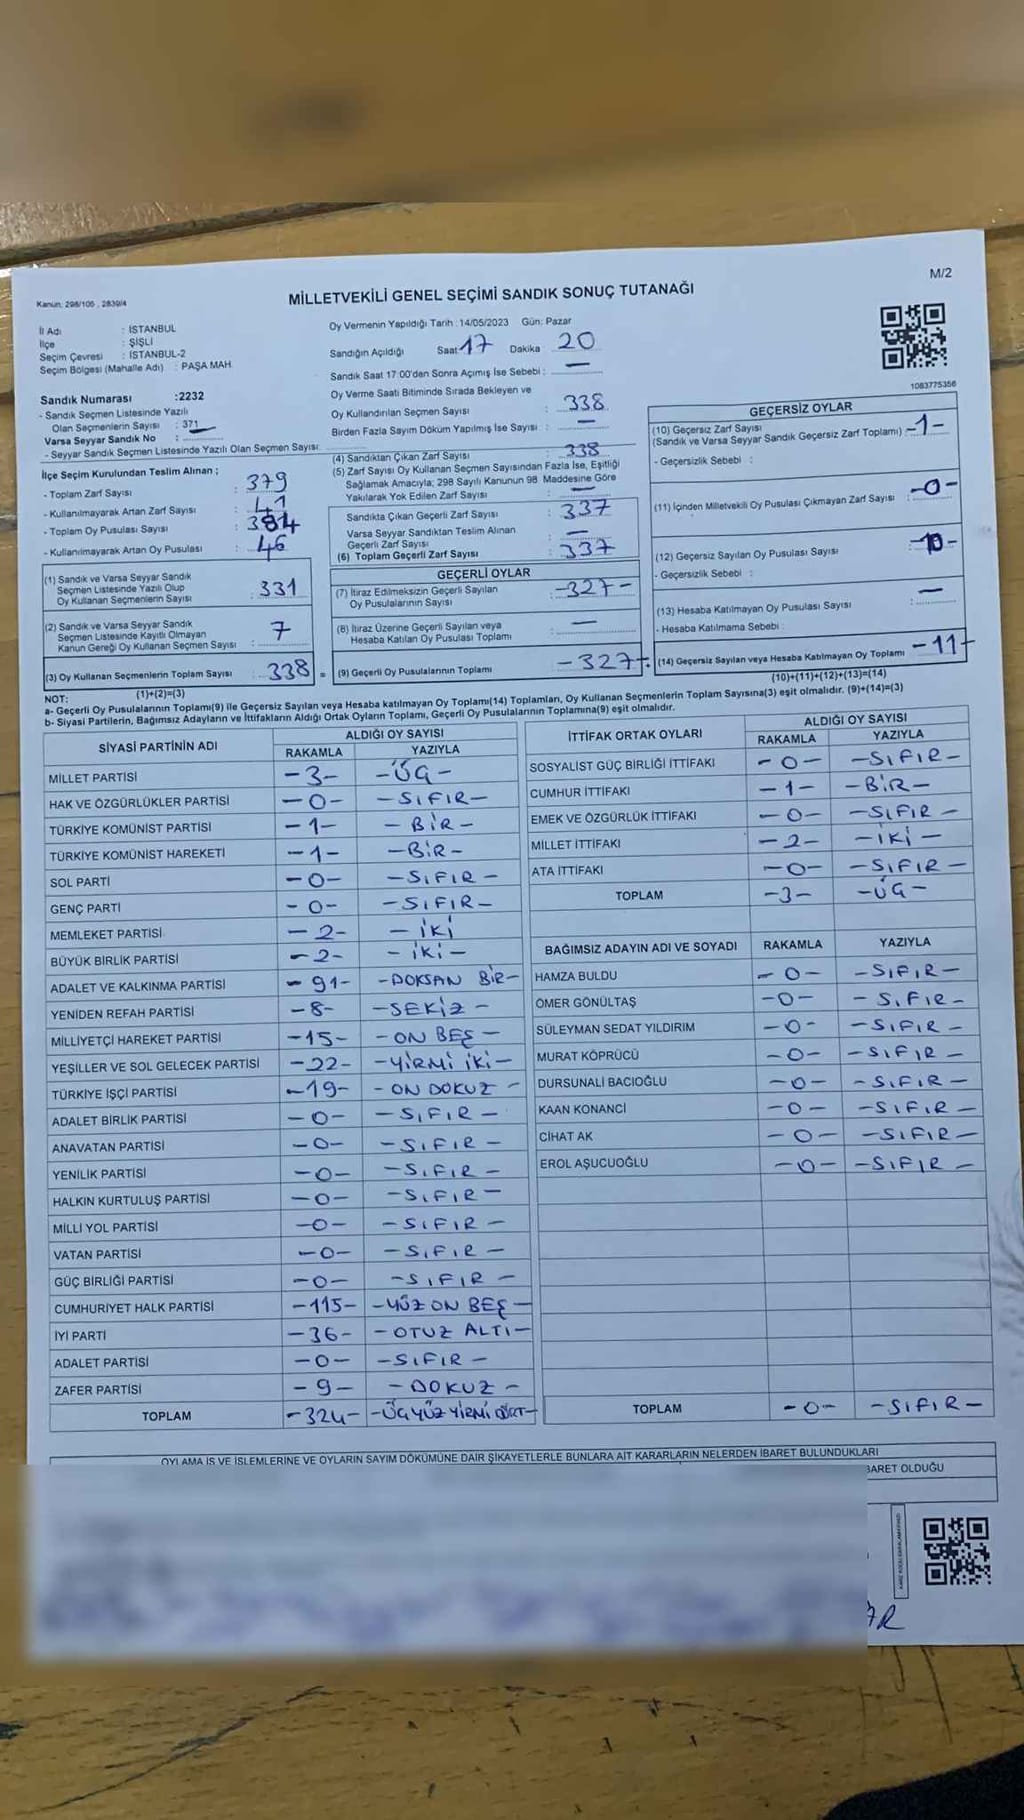 M/2
Kanun, 298/105 , 2839/4
MİLLETVEKİLİ GENEL SEÇİMİ SANDIK SONUÇ TUTANAĞI
İl Adı : İSTANBUL
İlçe : ŞİŞLİ
Seçim Çevresi : İSTANBUL-2
Seçim Bölgesi (Mahalle Adı) : PAŞA MAH.
Oy Vermenin Yapıldığı Tarih : 14/05/2023 Gün: Pazar
Sandığın Açıldığı Saat 17 Dakika 20
Sandık Saat 17:00'den Sonra Açımış İse Sebebi : —
1083775356
Sandık Numarası :2232
- Sandık Seçmen Listesinde Yazılı
Olan Seçmenlerin Sayısı : 371
Varsa Seyyar Sandık No :
- Seyyar Sandık Seçmen Listesinde Yazılı Olan Seçmen Sayısı:
Oy Verme Saati Bitiminde Sırada Bekleyen ve
Oy Kullandırılan Seçmen Sayısı : 338
Birden Fazla Sayım Döküm Yapılmış İse Sayısı : —
İlçe Seçim Kurulundan Teslim Alınan ;
- Toplam Zarf Sayısı : 379
- Kullanılmayarak Artan Zarf Sayısı : 41
- Toplam Oy Pusulası Sayısı : 384
- Kullanılmayarak Artan Oy Pusulası : 46
(4) Sandıktan Çıkan Zarf Sayısı : 338
(5) Zarf Sayısı Oy Kullanan Seçmen Sayısından Fazla İse, Eşitliği
Sağlamak Amacıyla; 298 Sayılı Kanunun 98. Maddesine Göre
Yakılarak Yok Edilen Zarf Sayısı : —
Sandıkta Çıkan Geçerli Zarf Sayısı : 337
Varsa Seyyar Sandıktan Teslim Alınan
Geçerli Zarf Sayısı : —
(6) Toplam Geçerli Zarf Sayısı : 337
(1) Sandık ve Varsa Seyyar Sandık
Seçmen Listesinde Yazılı Olup
Oy Kullanan Seçmenlerin Sayısı : 331
(2) Sandık ve Varsa Seyyar Sandık
Seçmen Listesinde Kayıtlı Olmayan
Kanun Gereği Oy Kullanan Seçmen Sayısı : 7
(3) Oy Kullanan Seçmenlerin Toplam Sayısı : 338 =
(1)+(2)=(3)
GEÇERLİ OYLAR
(7) İtiraz Edilmeksizin Geçerli Sayılan
Oy Pusulalarının Sayısı : -327-
(8) İtiraz Üzerine Geçerli Sayılan veya
Hesaba Katılan Oy Pusulası Toplamı : —
(9) Geçerli Oy Pusulalarının Toplamı -327- +
GEÇERSİZ OYLAR
(10) Geçersiz Zarf Sayısı
(Sandık ve Varsa Seyyar Sandık Geçersiz Zarf Toplamı) : -1-
- Geçersizlik Sebebi :
(11) İçinden Milletvekili Oy Pusulası Çıkmayan Zarf Sayısı : -0-
(12) Geçersiz Sayılan Oy Pusulası Sayısı : -10-
- Geçersizlik Sebebi :
(13) Hesaba Katılmayan Oy Pusulası Sayısı : —
- Hesaba Katılmama Sebebi :
(14) Geçersiz Sayılan veya Hesaba Katılmayan Oy Toplamı -11-
(10)+(11)+(12)+(13)=(14)
NOT:
a- Geçerli Oy Pusulalarının Toplamı(9) ile Geçersiz Sayılan veya Hesaba katılmayan Oy Toplamı(14) Toplamları, Oy Kullanan Seçmenlerin Toplam Sayısına(3) eşit olmalıdır. (9)+(14)=(3)
b- Siyasi Partilerin, Bağımsız Adayların ve İttifakların Aldığı Ortak Oyların Toplamı, Geçerli Oy Pusulalarının Toplamına(9) eşit olmalıdır.
SİYASİ PARTİNİN ADI ALDIĞI OY SAYISI
RAKAMLA YAZIYLA
MİLLET PARTİSİ -3- -ÜÇ-
HAK VE ÖZGÜRLÜKLER PARTİSİ -0- -SIFIR-
TÜRKİYE KOMÜNİST PARTİSİ -1- -BİR-
TÜRKİYE KOMÜNİST HAREKETİ -1- -BİR-
SOL PARTİ -0- -SIFIR-
GENÇ PARTİ -0- -SIFIR-
MEMLEKET PARTİSİ -2- -İKİ
BÜYÜK BİRLİK PARTİSİ -2- -İKİ-
ADALET VE KALKINMA PARTİSİ -91- -DOKSAN BİR-
YENİDEN REFAH PARTİSİ -8- -SEKİZ-
MİLLİYETÇİ HAREKET PARTİSİ -15- -ON BEŞ-
YEŞİLLER VE SOL GELECEK PARTİSİ -22- -YİRMİ İKİ-
TÜRKİYE İŞÇİ PARTİSİ -19- -ON DOKUZ-
ADALET BİRLİK PARTİSİ -0- -SIFIR-
ANAVATAN PARTİSİ -0- -SIFIR-
YENİLİK PARTİSİ -0- -SIFIR-
HALKIN KURTULUŞ PARTİSİ -0- -SIFIR-
MİLLİ YOL PARTİSİ -0- -SIFIR-
VATAN PARTİSİ -0- -SIFIR-
GÜÇ BİRLİĞİ PARTİSİ -0- -SIFIR-
CUMHURİYET HALK PARTİSİ -115- -YÜZ ON BEŞ-
İYİ PARTİ -36- -OTUZ ALTI-
ADALET PARTİSİ -0- -SIFIR-
ZAFER PARTİSİ -9- -DOKUZ-
TOPLAM -324- -ÜÇYÜZ YİRMİ DÖRT-
İTTİFAK ORTAK OYLARI ALDIĞI OY SAYISI
RAKAMLA YAZIYLA
SOSYALİST GÜÇ BİRLİĞİ İTTİFAKI -0- -SIFIR-
CUMHUR İTTİFAKI -1- -BİR-
EMEK VE ÖZGÜRLÜK İTTİFAKI -0- -SIFIR-
MİLLET İTTİFAKI -2- -İKİ-
ATA İTTİFAKI -0- -SIFIR-
TOPLAM -3- -ÜÇ-
BAĞIMSIZ ADAYIN ADI VE SOYADI RAKAMLA YAZIYLA
HAMZA BULDU -0- -SIFIR-
ÖMER GÖNÜLTAŞ -0- -SIFIR-
SÜLEYMAN SEDAT YILDIRIM -0- -SIFIR-
MURAT KÖPRÜCÜ -0- -SIFIR-
DURSUNALİ BACIOĞLU -0- -SIFIR-
KAAN KONANCİ -0- -SIFIR-
CİHAT AK -0- -SIFIR-
EROL AŞUCUOĞLU -0- -SIFIR-
TOPLAM -0- -SIFIR-
OYLAMA İŞ VE İŞLEMLERİNE VE OYLARIN SAYIM DÖKÜMÜNE DAİR ŞİKAYETLERLE BUNLARA AİT KARARLARIN NELERDEN İBARET BULUNDUKLARI
BARET OLDUĞU